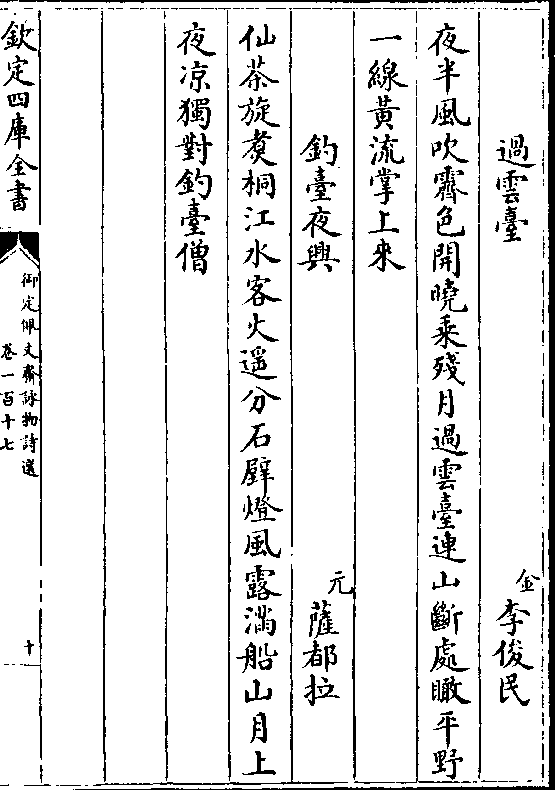 過雲臺
金 李俊民
夜半風吹霽色開曉乗殘月過雲臺連山斷處瞰平野
一線黃流掌上來
釣臺夜興
元 薩都拉
仙茶旋煑桐江水客火遥分石壁燈風露滿船山月上
夜凉獨對釣臺僧
欽定四庫全書
御定佩文齋詠物詩選
卷一百十七
十